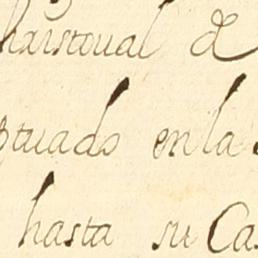 haristoual de
ptuado en la
hasta su Cas